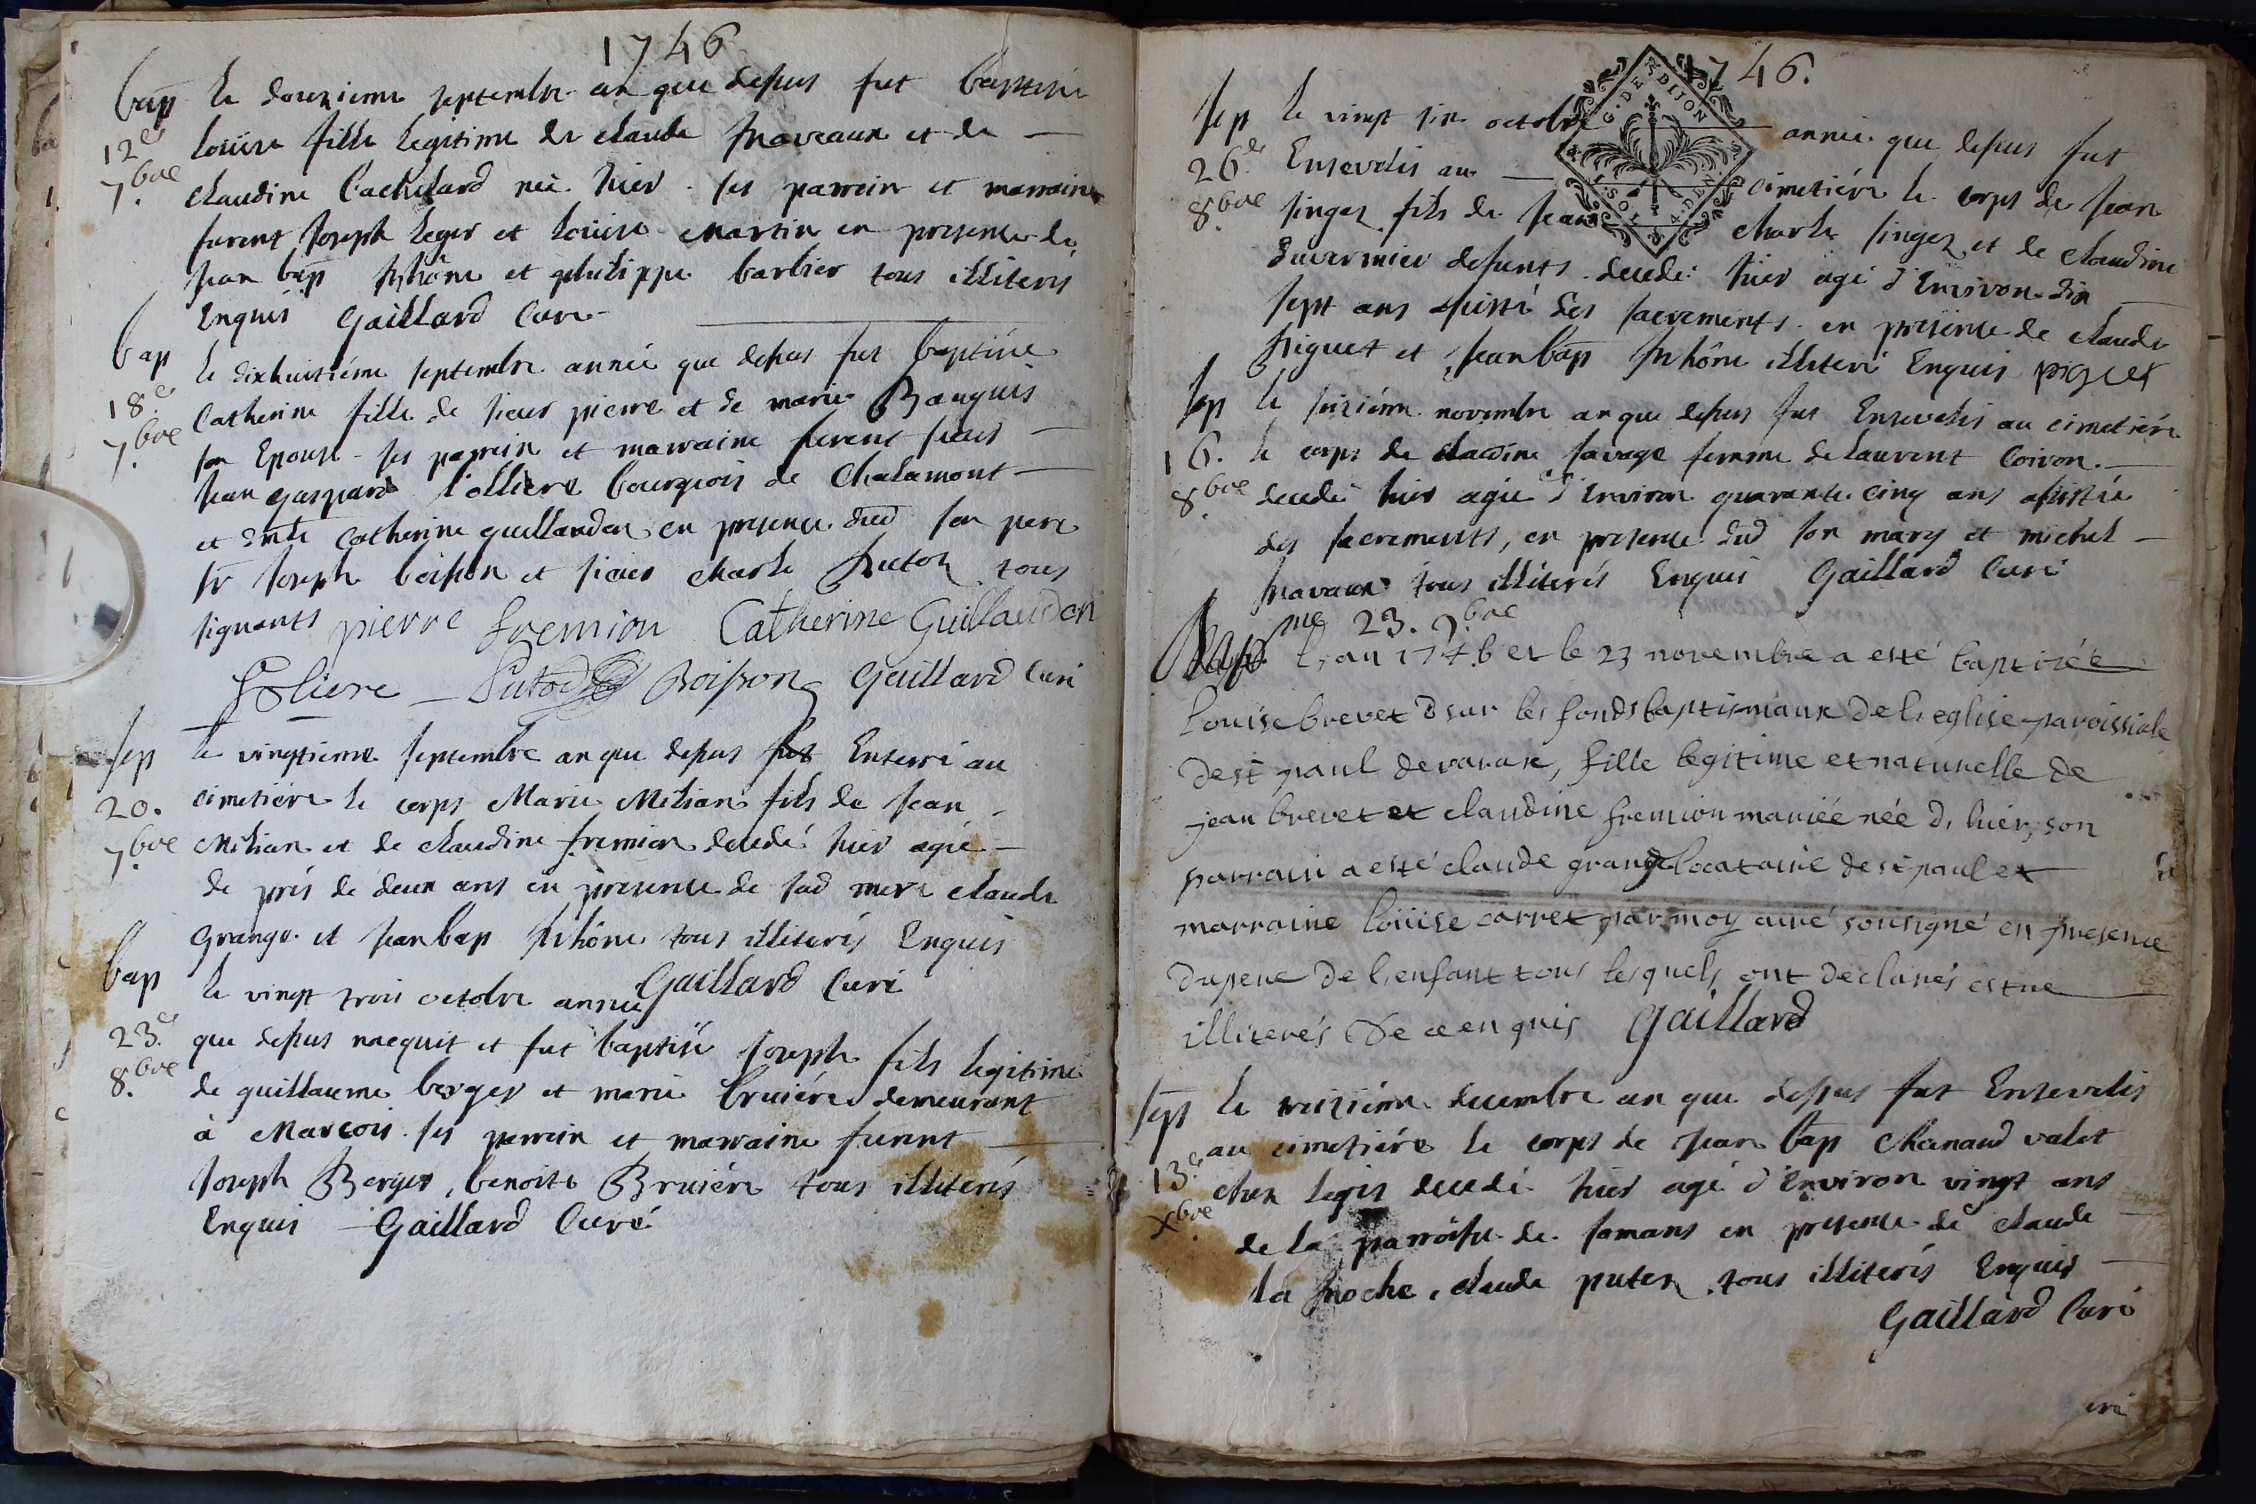 1746
bap le douzieme septembre an que dessus fut baptisée
12e
7bre
Loüise fille legitime de claude Travaux et de
claudine Cachetard née hier. ses parrein et marraine
furent Joseph Leger et Loüise Martin en presence de
Jean bap et philippe barbier tous illiterés
Enquis Gaillard Curé
bap le dixhuitiéme septembre année que dessus fut baptisée
18e
7bre
Catherine fille de sieur pierre et de marie Bauguis
son Epouse. ses parrein et marraine furent sieur
Jean gaspard Tolliere bourgeois de Chalamont
et dmlle Catherine guillaudon en presence dud son pere
Sr Joseph boisson et sieur Charle tous
signants pierre fremion Catherine Guillaudon
Boisson Gaillard Curé
sep le vingtieme septembre an que dessus fut Enterré au
20.
7bre
cimetiére le corps Marie Milian fils de Jean
Milian et de claudine fremion decedé hier agé
de prés de deux ans en presence de sad mere claude
Grange et Jean bap tous illiterés Enquis
Gaillard Curé
bap le vingt trois octobre année
23e
8bre
que dessus nacquit et fut baptisé Joseph fils legitime
de guillaume berger et marie bruiére demeurant
à Marcois. ses parrein et marraine furent
Joseph Berger, benoite Bruiére tous illiterés
Enquis Gaillard Curé
1746.
G. DE DIJON
SOLS 4 DEN
sep le vingt six octobre année que dessus fut
26e
8bre
Ensevelis au cimetiére le corps de Jean
singez fils de Jean Charle singez et de Claudine
duvermier defunts. decedé hier agé d'Environ dix
sept ans assisté des sacrements en presence de claude
piguet et Jean bap illiteré Enquis piguet
sep le seiziéme novembre an que dessus fut Ensevelis au cimetiére
16.
8bre
le corps de claudine savage femme de Laurent Coiron.
decedé hier agée d'Environ quarante cinq ans assistée
des sacrements, en presence dud son mary et michel
Travaux tous illiterés Enquis Gaillard Curé
Bap me 23. 9bre
L'an 1746 et le 23 novembre a esté baptizée
Louise brevet sur les fonds baptismaux de l'eglise paroissiale
de st paul de varax, fille legitime et naturelle de
jean brevet et claudine fremion mariée née d'hier, son
parrain a esté claude grange locataire de st paul et
marraine Loüise carret par moy curé sousigné en presence
du pere de l'enfant tous lesquels ont declarés estre
illiterés de ce enquis Gaillard
sep le treiziéme decembre an que dessus fut Ensevelis
13e
Xbre
au cimetiére le corps de Jean bap Chanaud valet
chez Legris decedé hier agé d'Environ vingt ans
de la parroisse de samans en presence de claude
la roche, claude puter, tous illiterés Enquis
Gaillard Curé